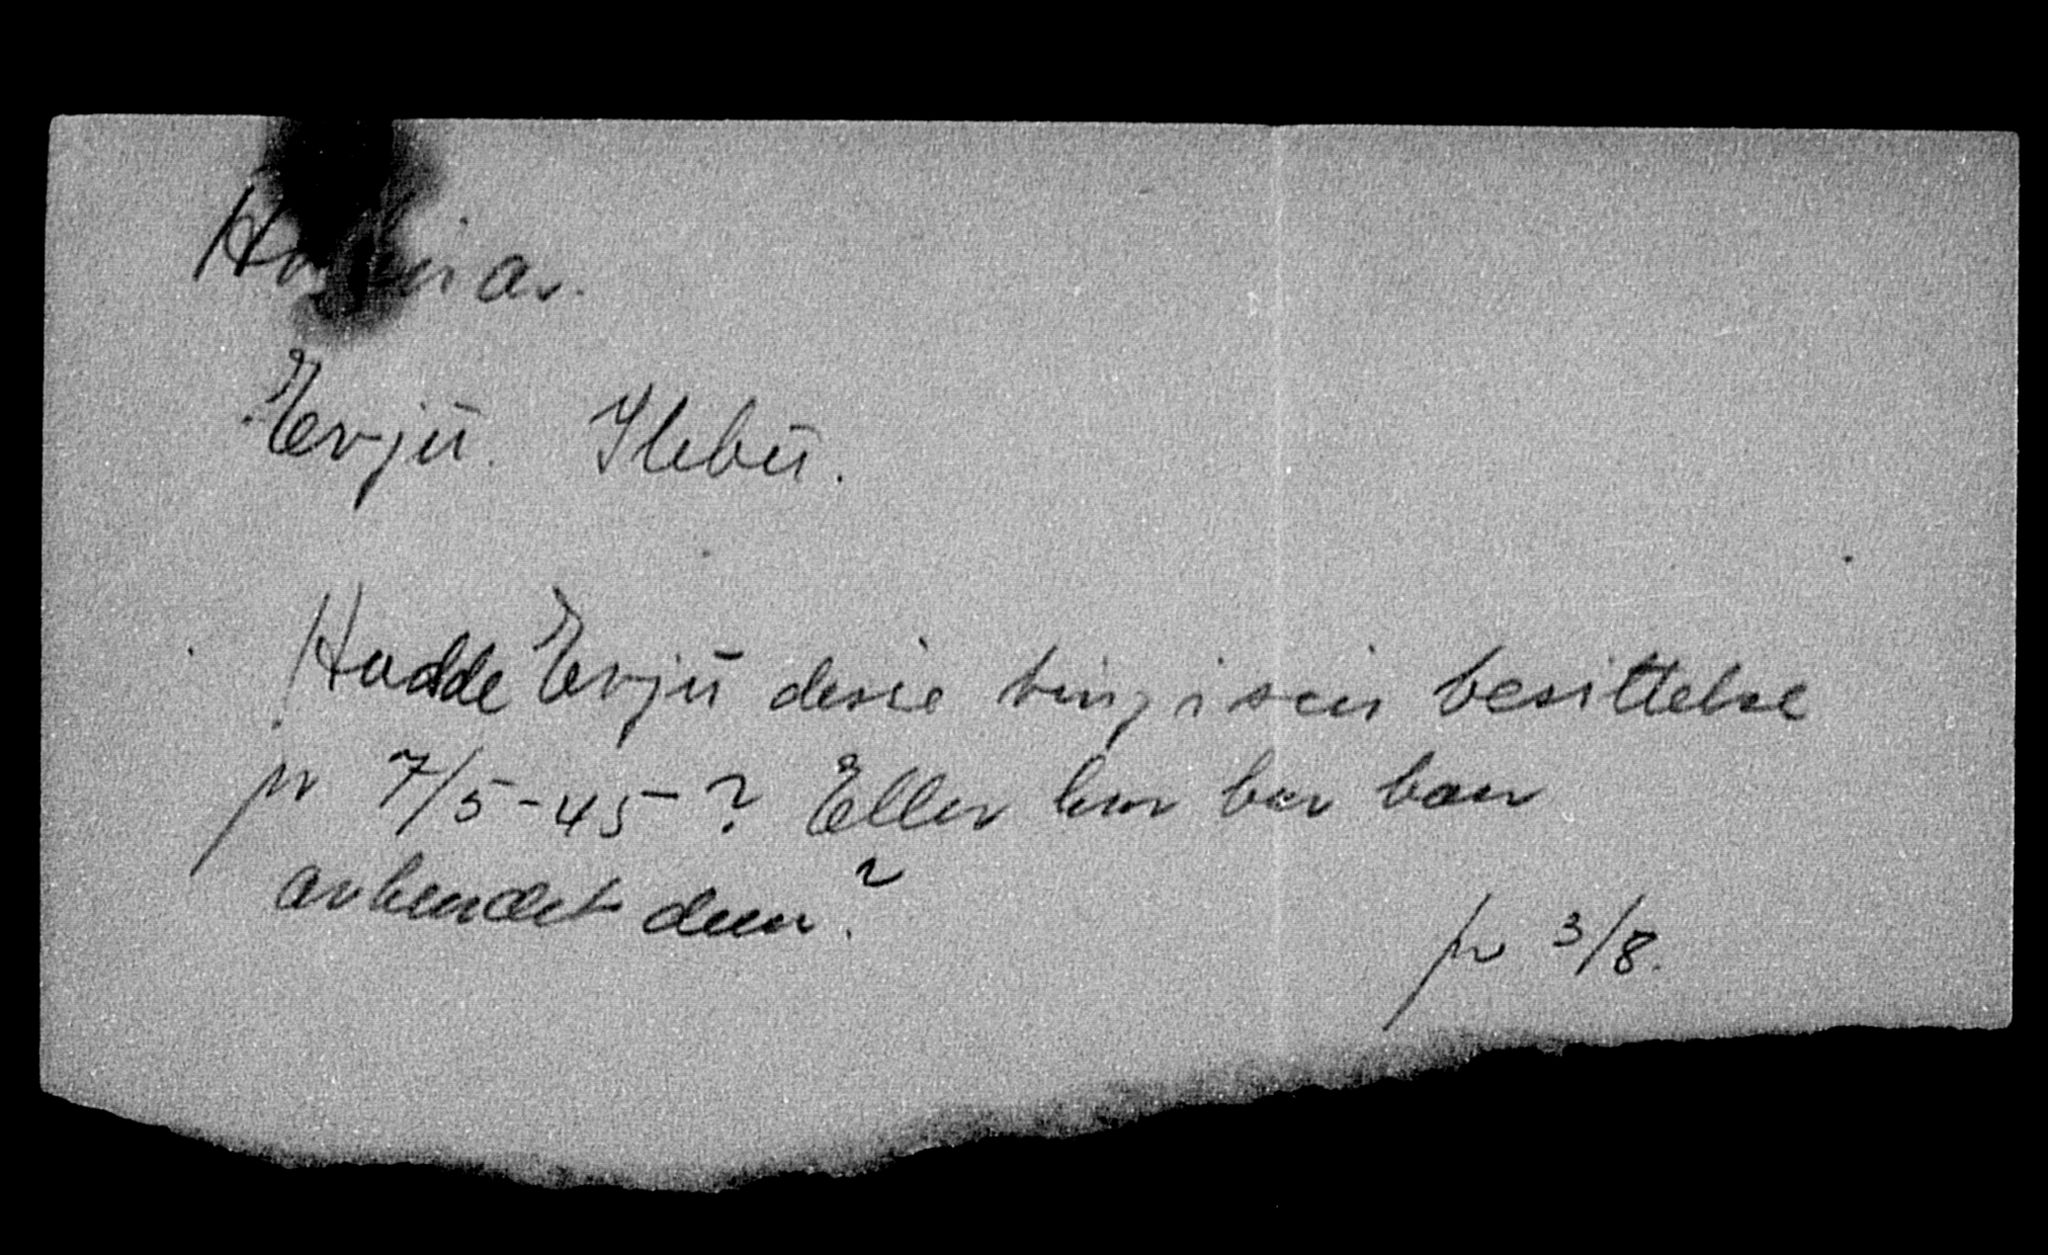 Evju. Ilebu.
Hadde Evju disse ting i sin besittelse
pr 7/5-45? Eller har han
avhendet dem?
pr 3/8.